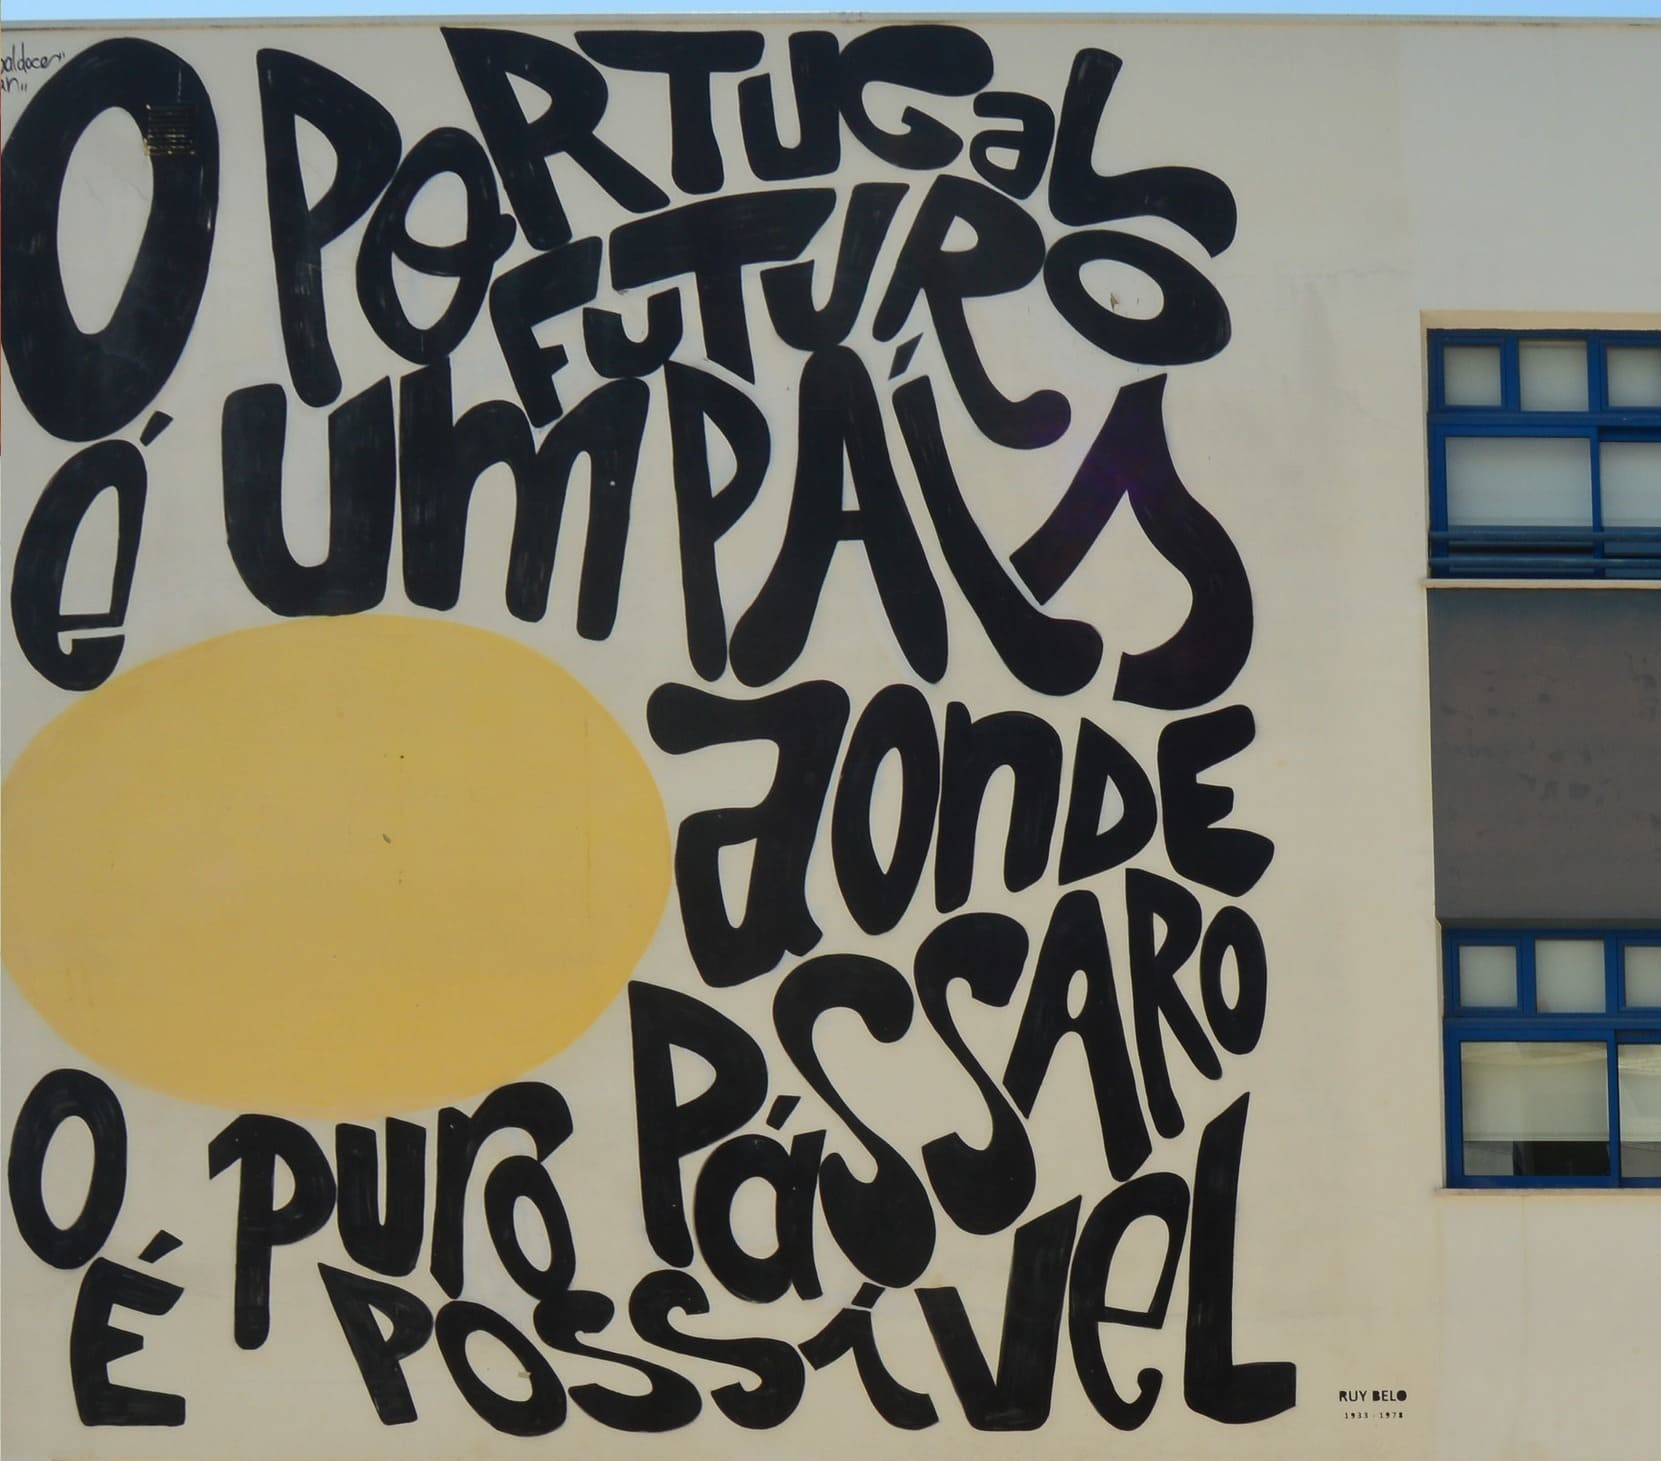 O PORTUGaL
FuTURO
é um PAÍS
aonDE
O puro PáSSARO
É POSSíVeL
RUY BELO
1933 - 1978